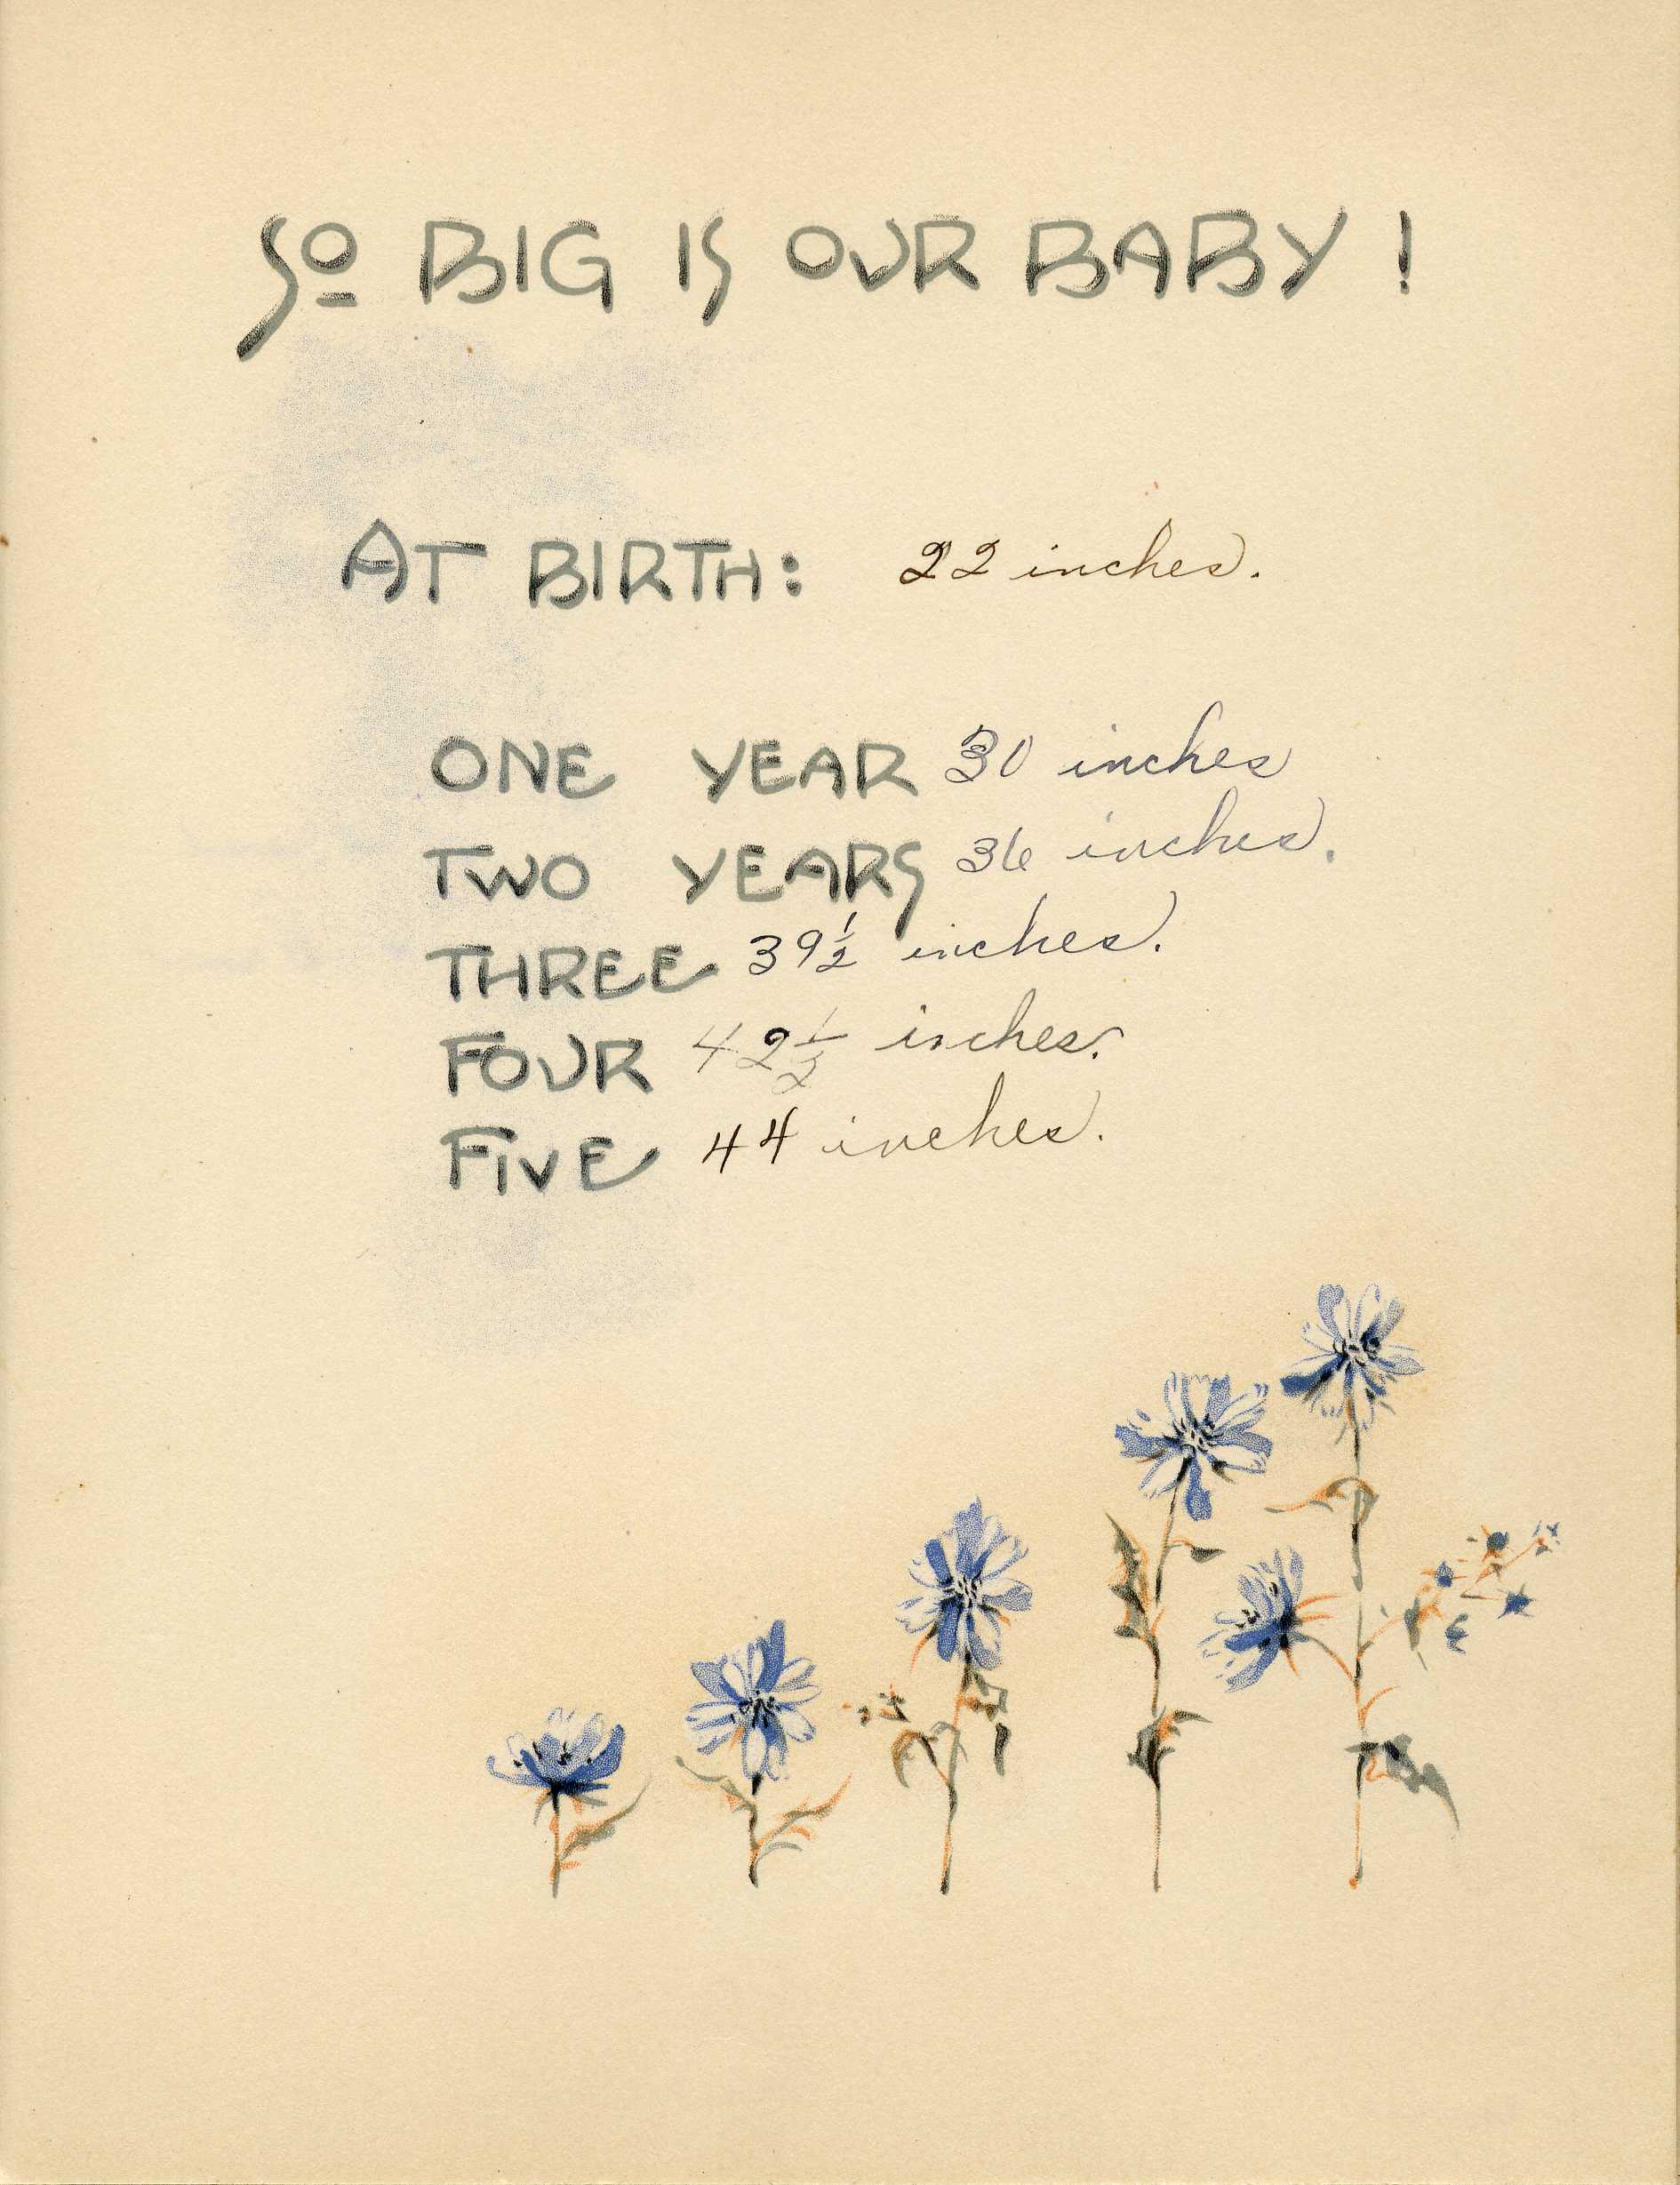 SO BIG IS OUR BABY !
AT BIRTH: 22 inches.
ONE YEAR 30 inches
TWO YEARS 36 inches.
THREE 39½ inches.
FOUR 42½ inches.
FIVE 44 inches.